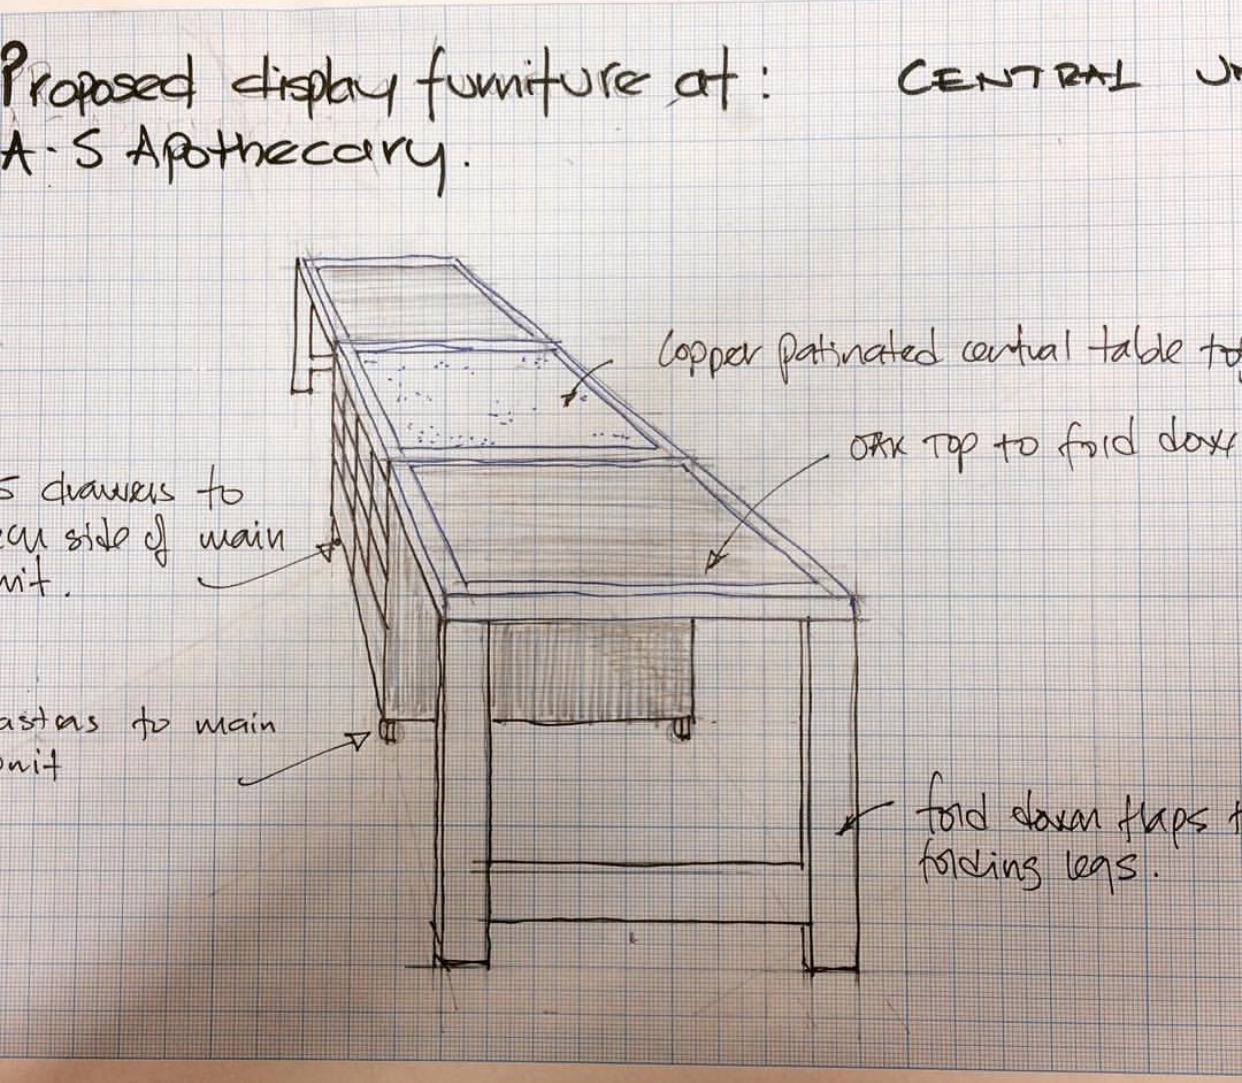 Proposed display furniture at: CENTRAL UN
A·S Apothecary.
Copper patinated central table top
OAK TOP to fold down
5 drawers to
side of main
nit.
asters to main
unit
fold down flaps
folding legs.